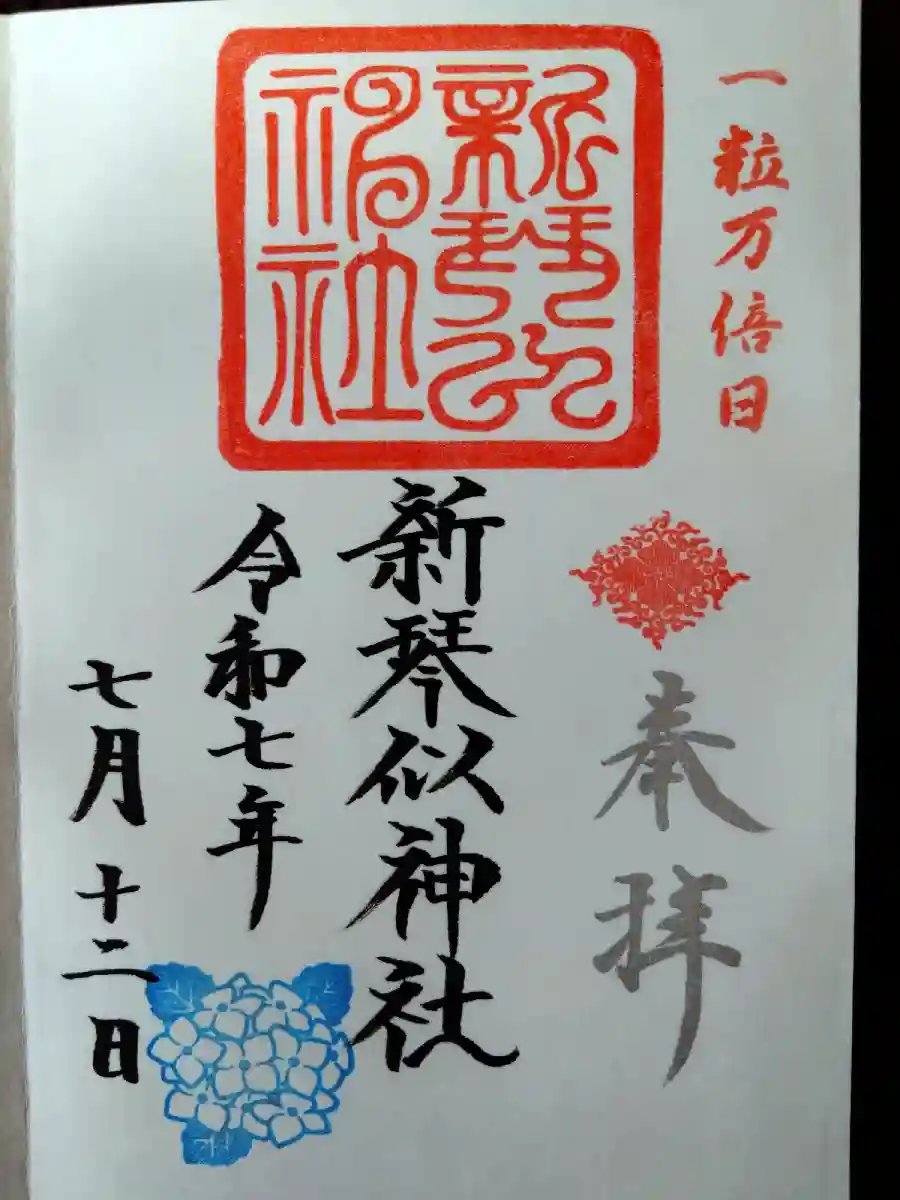 一粒万倍日
奉拝
新琴似神社
新琴似神社
令和七年
七月十二日